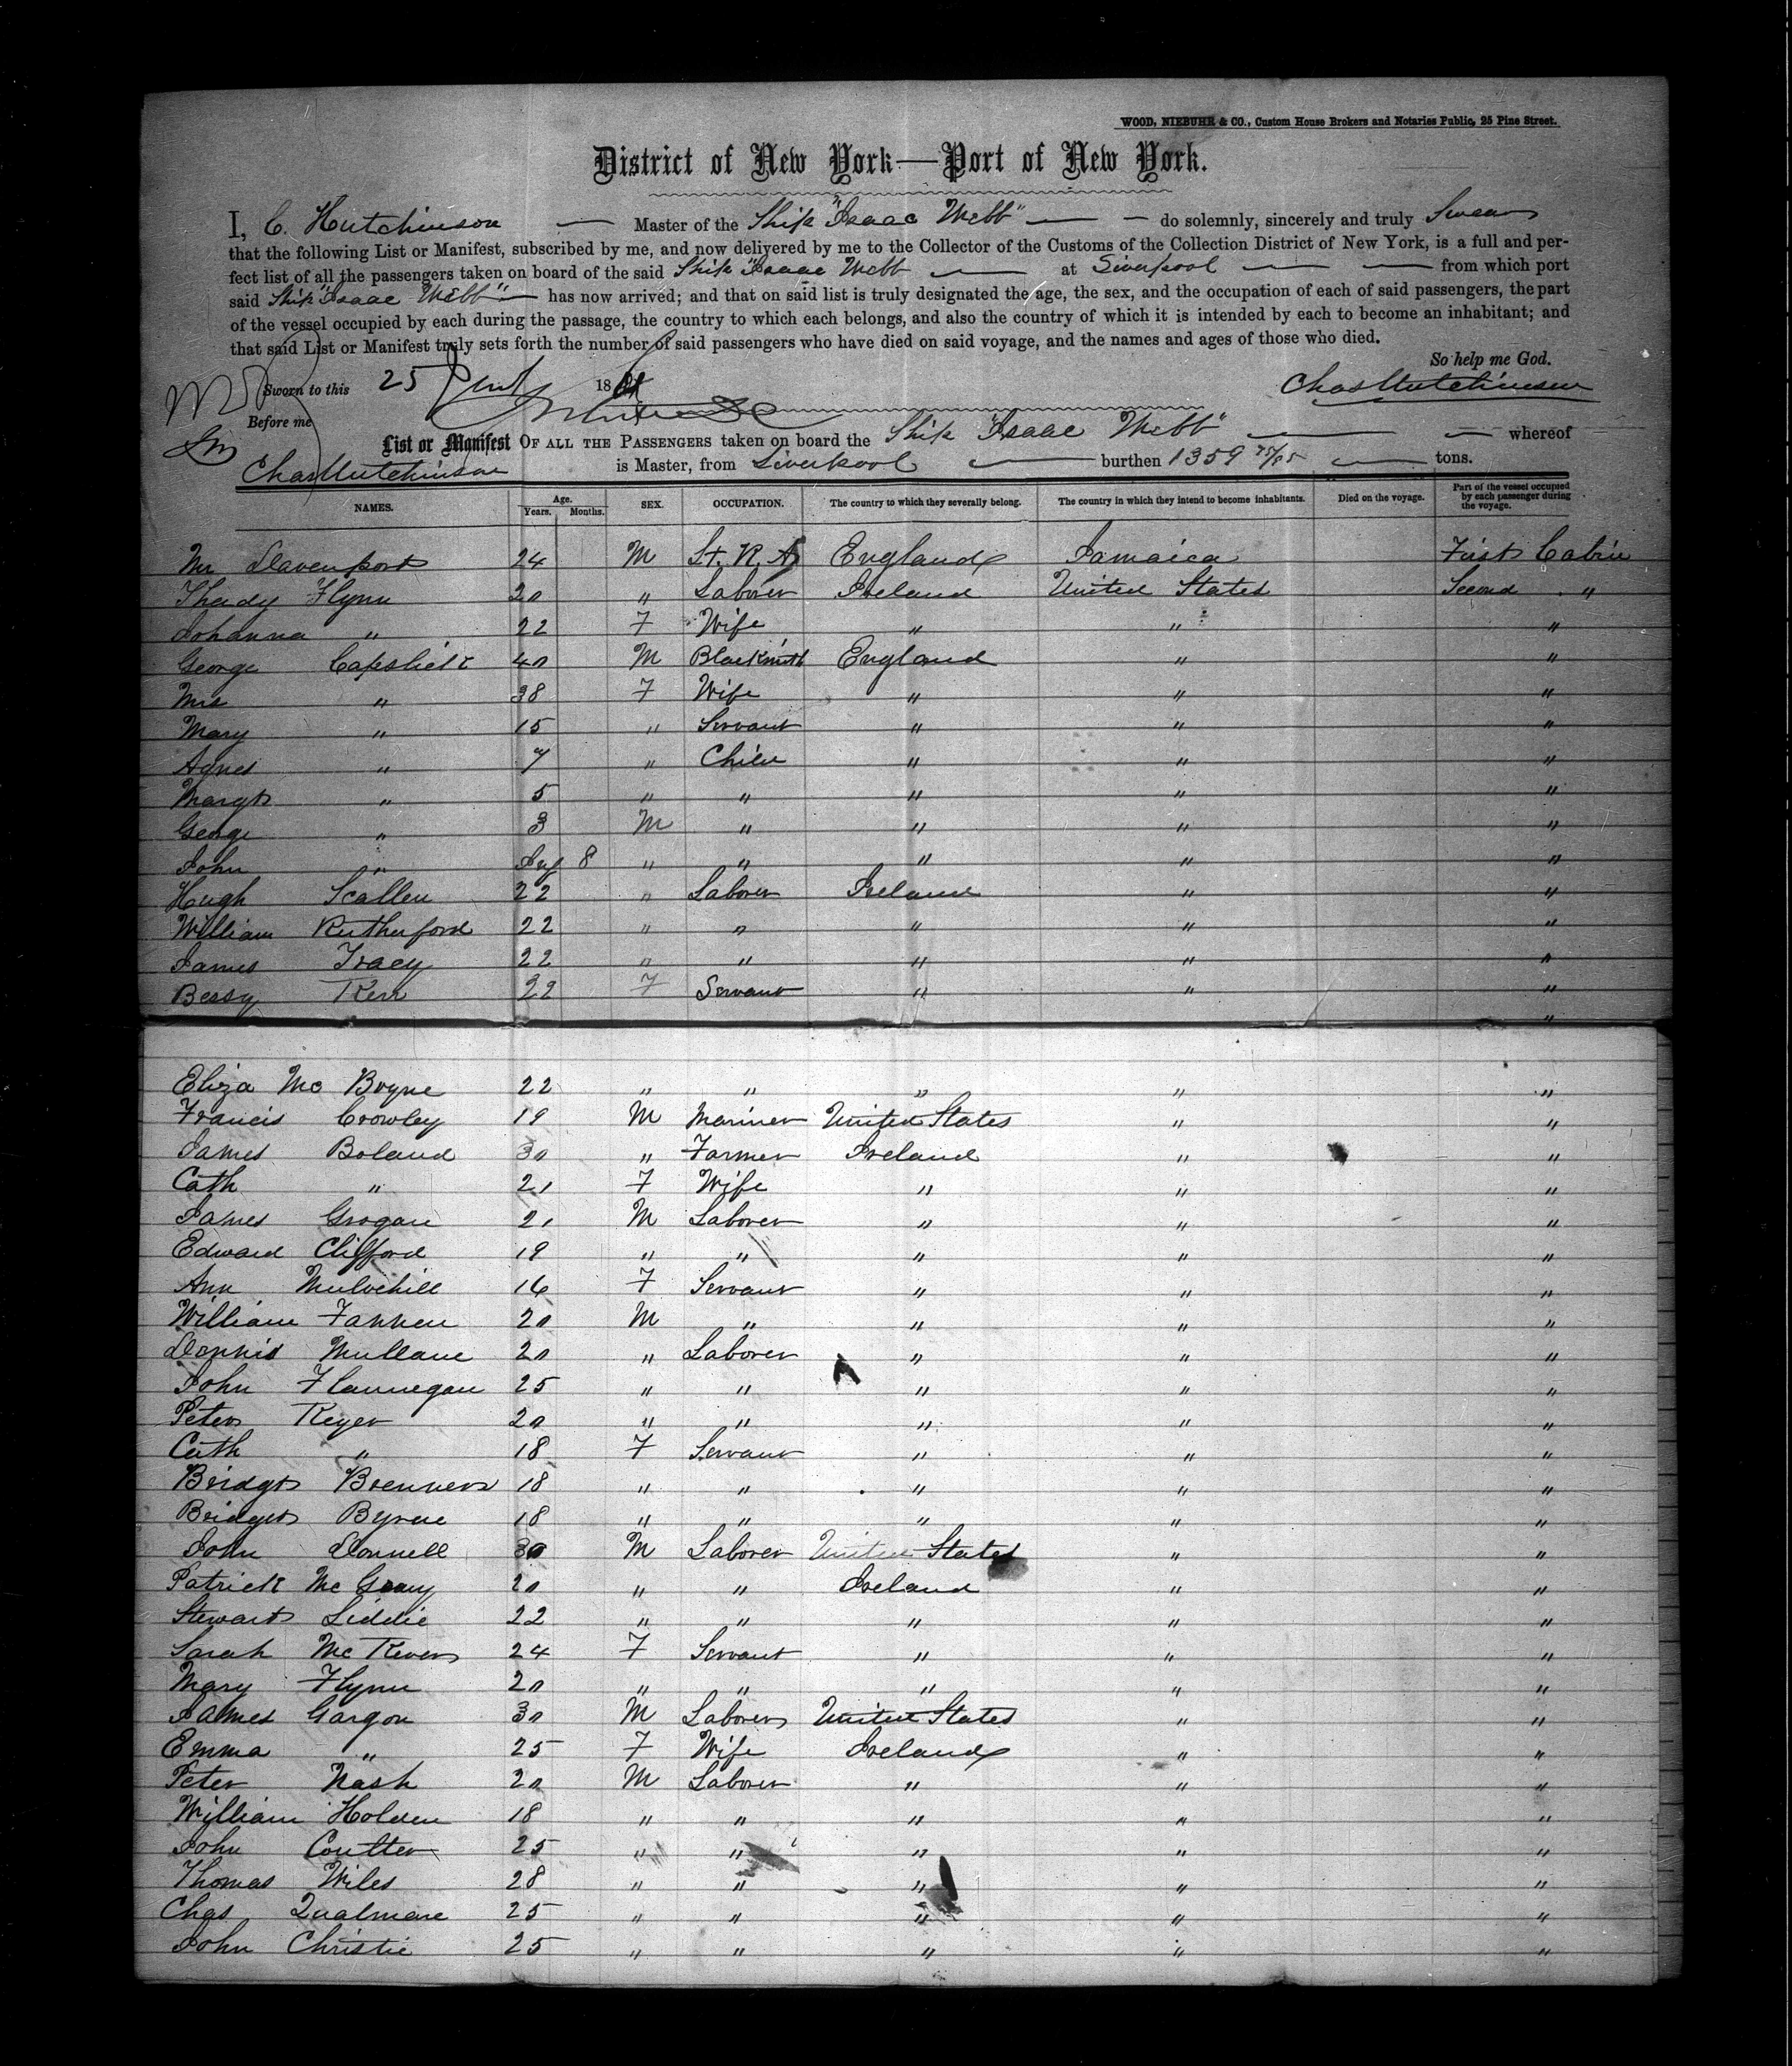 WOOD, NIEBUHR & CO., Custom House Brokers and Notaries Public, 25 Pine Street.
District of New York—Port of New York.
I, C. Hutchinson — Master of the Ship "Isaac Webb" — — do solemnly, sincerely and truly Swear
that the following List or Manifest, subscribed by me, and now delivered by me to the Collector of the Customs of the Collection District of New York, is a full and per-
fect list of all the passengers taken on board of the said Ship "Isaac Webb — at Liverpool — — from which port
said Ship "Isaac Webb" — has now arrived; and that on said list is truly designated the age, the sex, and the occupation of each of said passengers, the part
of the vessel occupied by each during the passage, the country to which each belongs, and also the country of which it is intended by each to become an inhabitant; and
that said List or Manifest truly sets forth the number of said passengers who have died on said voyage, and the names and ages of those who died.
So help me God.
Sworn to this 25 18 Chas Hutchinson
Before me
List or Manifest OF ALL THE PASSENGERS taken on board the Ship "Isaac Webb" — — whereof
Chas Hutchinson is Master, from Liverpool — burthen 1359 75/95 — tons.
NAMES. Age. Years. Months. SEX. OCCUPATION. The country to which they severally belong. The country in which they intend to become inhabitants. Died on the voyage. Part of the vessel occupied by each passenger during the voyage.
Mr Davenport 24 M Lt. R. A England Jamaica First Cabin
Thady Flynn 20 " Laborer Ireland United States Second "
Johanna " 22 F Wife " " "
George Capstick 40 M Blacksmith England " "
Mrs " 38 F Wife " " "
Mary " 15 " Servant " " "
Agnes " 7 " Child " " "
Margt " 5 " " " " "
George " 3 M " " " "
John " Inf 8 " " " " "
Hugh Scallen 22 " Laborer Ireland " "
William Rutherford 22 " " " " "
James Tracy 22 " " " " "
Bessy Kerr 22 F Servant " " "
"
Eliza Mc Boyne 22 " " " " "
Francis Crowley 19 M Mariner United States " "
James Boland 30 " Farmer Ireland " "
Cath " 21 F Wife " " "
James Grogan 21 M Laborer " " "
Edward Clifford 19 " " " " "
Ann Mulvehill 16 F Servant " " "
William Fannen 20 M " " " "
Dennis Mullane 20 " Laborer " " "
John Flannegan 25 " " " " "
Peter Keyer 20 " " " " "
Cath " 18 F Servant " " "
Bridgt Brenner 18 " " " " "
Bridget Byrne 18 " " " " "
John Donnell 30 M Laborer United States " "
Patrick Mc Geary 20 " " Ireland " "
Stewart Liddie 22 " " " " "
Sarah Mc Kever 24 F Servant " " "
Mary Flynn 20 " " " " "
James Gargon 30 M Laborer United States " "
Emma " 25 F Wife Ireland " "
Peter Nash 20 M Laborer " " "
William Holden 18 " " " " "
John Coulter 25 " " " " "
Thomas Wiles 28 " " " " "
Chas Qualmane 25 " " " " "
John Christie 25 " " " " "